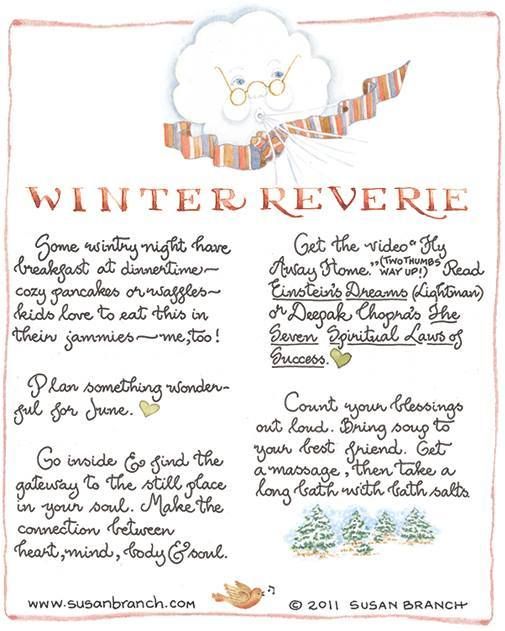 WINTER REVERIE
Some wintry night have
breakfast at dinnertime~
cozy pancakes or waffles~
kids love to eat this in
their jammies~me, too!
Plan something wonder-
ful for June.
Go inside & find the
gateway to the still place
in your soul. Make the
connection between
heart, mind, body & soul.
Get the video "Fly
Away Home." (TWO THUMBS WAY UP!) Read
Einstein's Dreams (Lightman)
or Deepak Chopra's The
Seven Spiritual Laws of
Success.
Count your blessings
out loud. Bring soup to
your best friend. Get
a massage, then take a
long bath with bath salts.
www.susanbranch.com
© 2011 SUSAN BRANCH